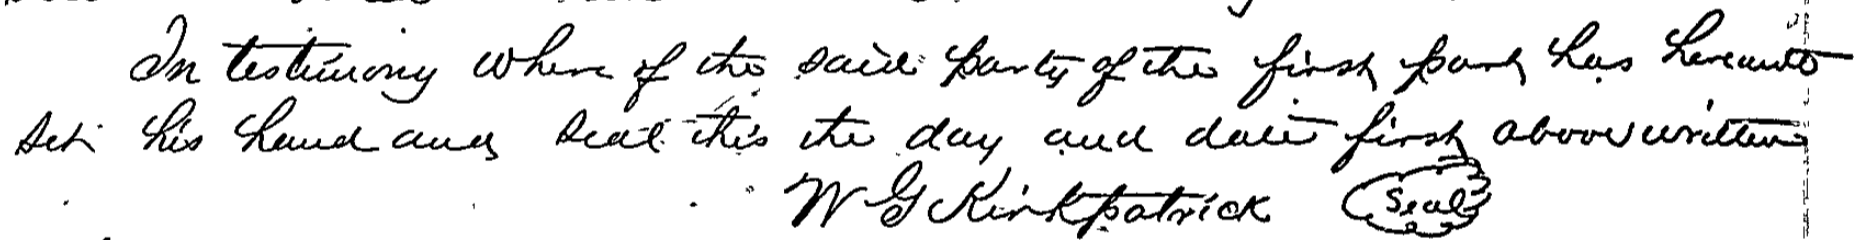 In testimony where of the said party of the first part has hereunto
set his hand and seal this the day and date first above written
W G Kirkpatrick Seal